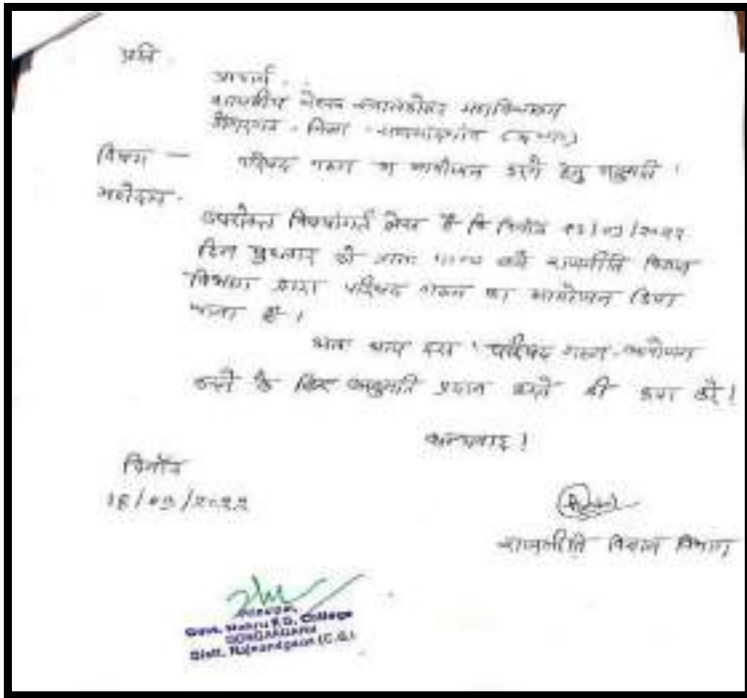 प्रति,
प्राचार्य,
शासकीय नेहरू स्नातकोत्तर महाविद्यालय
डोंगरगढ़, जिला - राजनांदगांव (छ.ग.)
विषय — परिषद गठन का आयोजन करने हेतु अनुमति ।
महोदय,
उपरोक्त विषयांतर्गत लेख है कि दिनांक /09/2022
दिन बुधवार को 11:00 बजे राजनीति विज्ञान
विभाग द्वारा परिषद गठन का आयोजन किया
जाना है ।
अतः आप इस परिषद गठन आयोजन
करने के लिए अनुमति प्रदान करने की कृपा करें !
धन्यवाद !
दिनांक
/09/2022
राजनीति विज्ञान विभाग
Principal,
Govt. Nehru P.G. College
DONGARGARH
Distt. Rajnandgaon (C.G.)